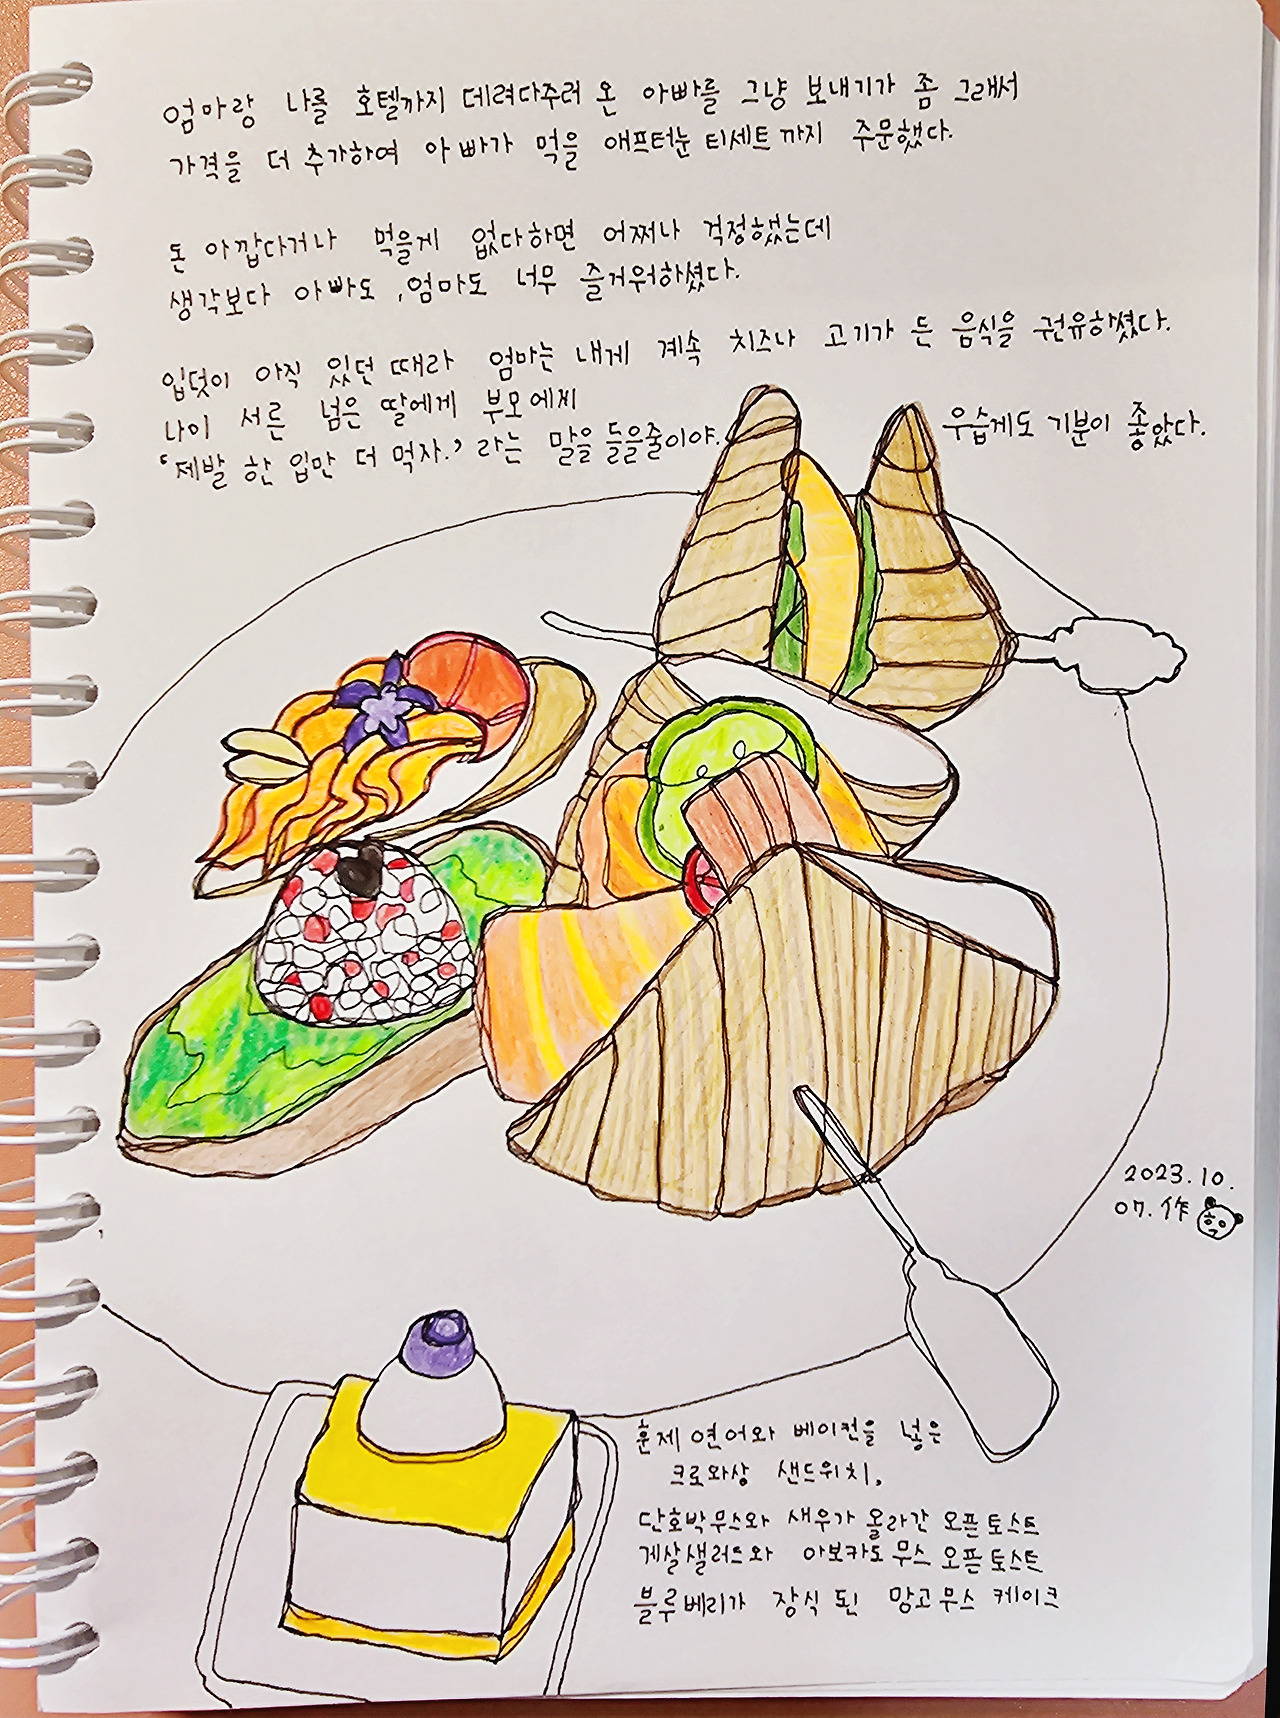 엄마랑 나를 호텔까지 데려다주러 온 아빠를 그냥 보내기가 좀 그래서
가격을 더 추가하여 아빠가 먹을 애프터눈 티세트까지 주문했다.
돈 아깝다거나 먹을게 없다하면 어쩌나 걱정했는데
생각보다 아빠도, 엄마도 너무 즐거워하셨다.
입덧이 아직 있던 때라 엄마는 내게 계속 치즈나 고기가 든 음식을 권유하셨다.
나이 서른 넘은 딸에게 부모에게
'제발 한 입만 더 먹자.' 라는 말을 들을줄이야. 우습게도 기분이 좋았다.
2023.10.
07. 作 획
훈제 연어와 베이컨을 넣은
크로와상 샌드위치,
단호박무스와 새우가 올라간 오픈토스트
게살샐러드와 아보카도 무스 오픈토스트
블루베리가 장식 된 망고무스 케이크